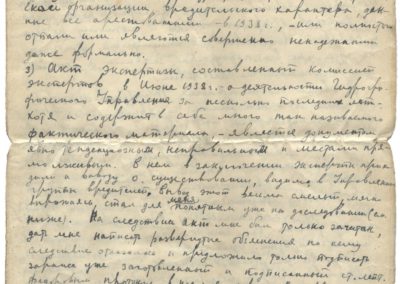 ской организации, вредительского характера, дан-
ные все арестованными - в 1938 г., - или полностью
отпали или являются совершенно ненадежными
даже формально.
3) Акт экспертизы, составленный комиссией
экспертов в Июне 1938 г. о деятельности Гидрогра-
фического Управления за несколько последних лет -
хотя и содержит в себе много так называемого
фактического материала, - является документом
явно тенденциозным, неправильным и местами пря-
мо лживым. В нем в заключении эксперты прихо-
дили к выводу о существовании, видимо, в Управлении
группы вредителей. этот весьма смелый
стал для меня понятным уже на доследовании (см
ниже). На следствии акт мне был только зачитан,
дать мне написать развернутые объяснения по нему
следствие отказало и предложило только подписать
заранее уже заготовленный и подписанный ст. лейт.
протокол